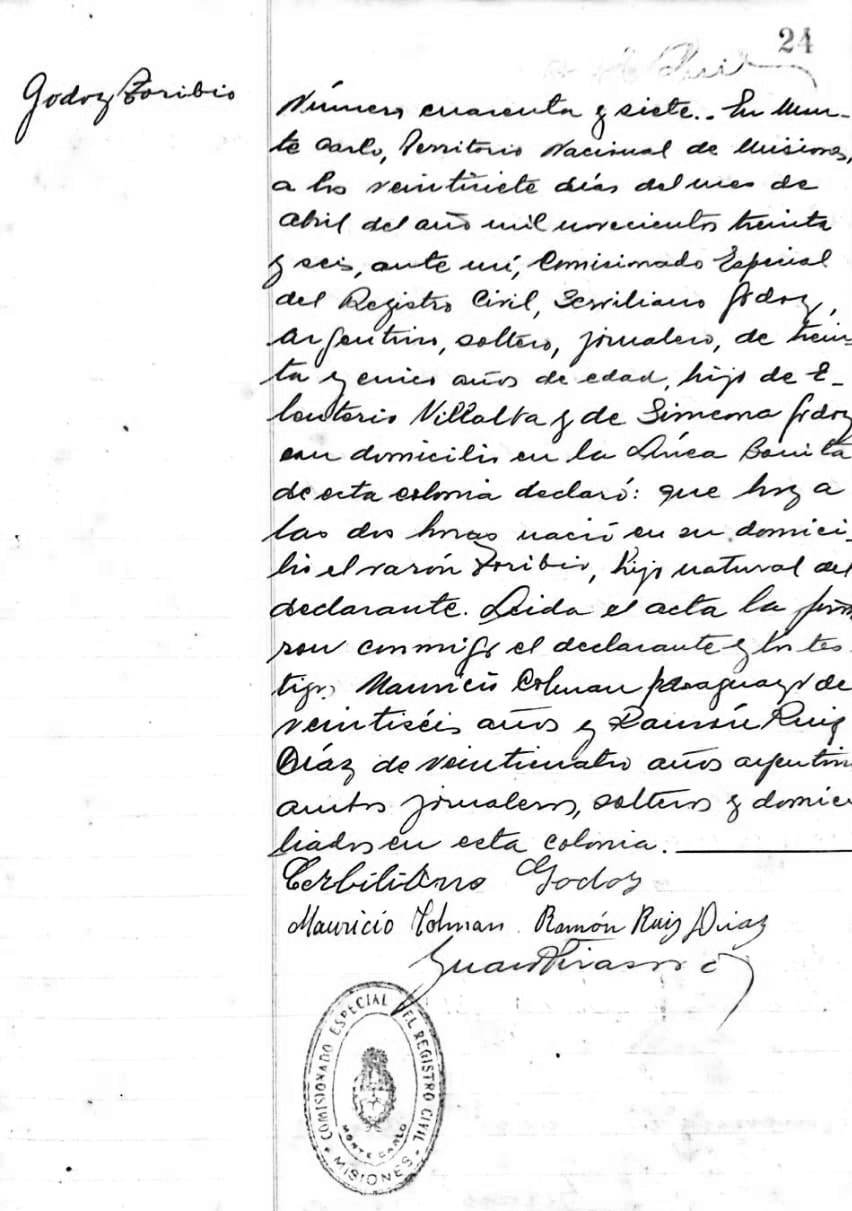 24
Godoy Toribio
Número cuarenta y siete.. En Mon-
te Carlo, Territorio Nacional de Misiones,
a los veintisiete días del mes de
abril del año mil novecientos treinta
y seis, ante mí, Comisionado Especial
del Registro Civil, Serviliano Godoy,
argentino, soltero, jornalero, de trein-
ta y cinco años de edad, hijo de E-
leuterio Villalba y de Simeona Godoy
con domicilio en la Línea Bonita
de esta colonia declaró: que hoy a
las dos horas nació en su domici-
lio el varón Toribio, hijo natural del
declarante. Leida el acta la firma
ron conmigo el declarante y los tes
tigos Mauricio Colman paraguayo de
veintiséis años y Ramón Ruiz
Díaz de veinticuatro años argentino
ambos jornaleros, solteros y domici
liados en esta colonia.
Cerbiliano Godoy
Mauricio Colman Ramón Ruiz Diaz
COMISIONADO ESPECIAL DEL REGISTRO CIVIL
MONTE CARLO
MISIONES